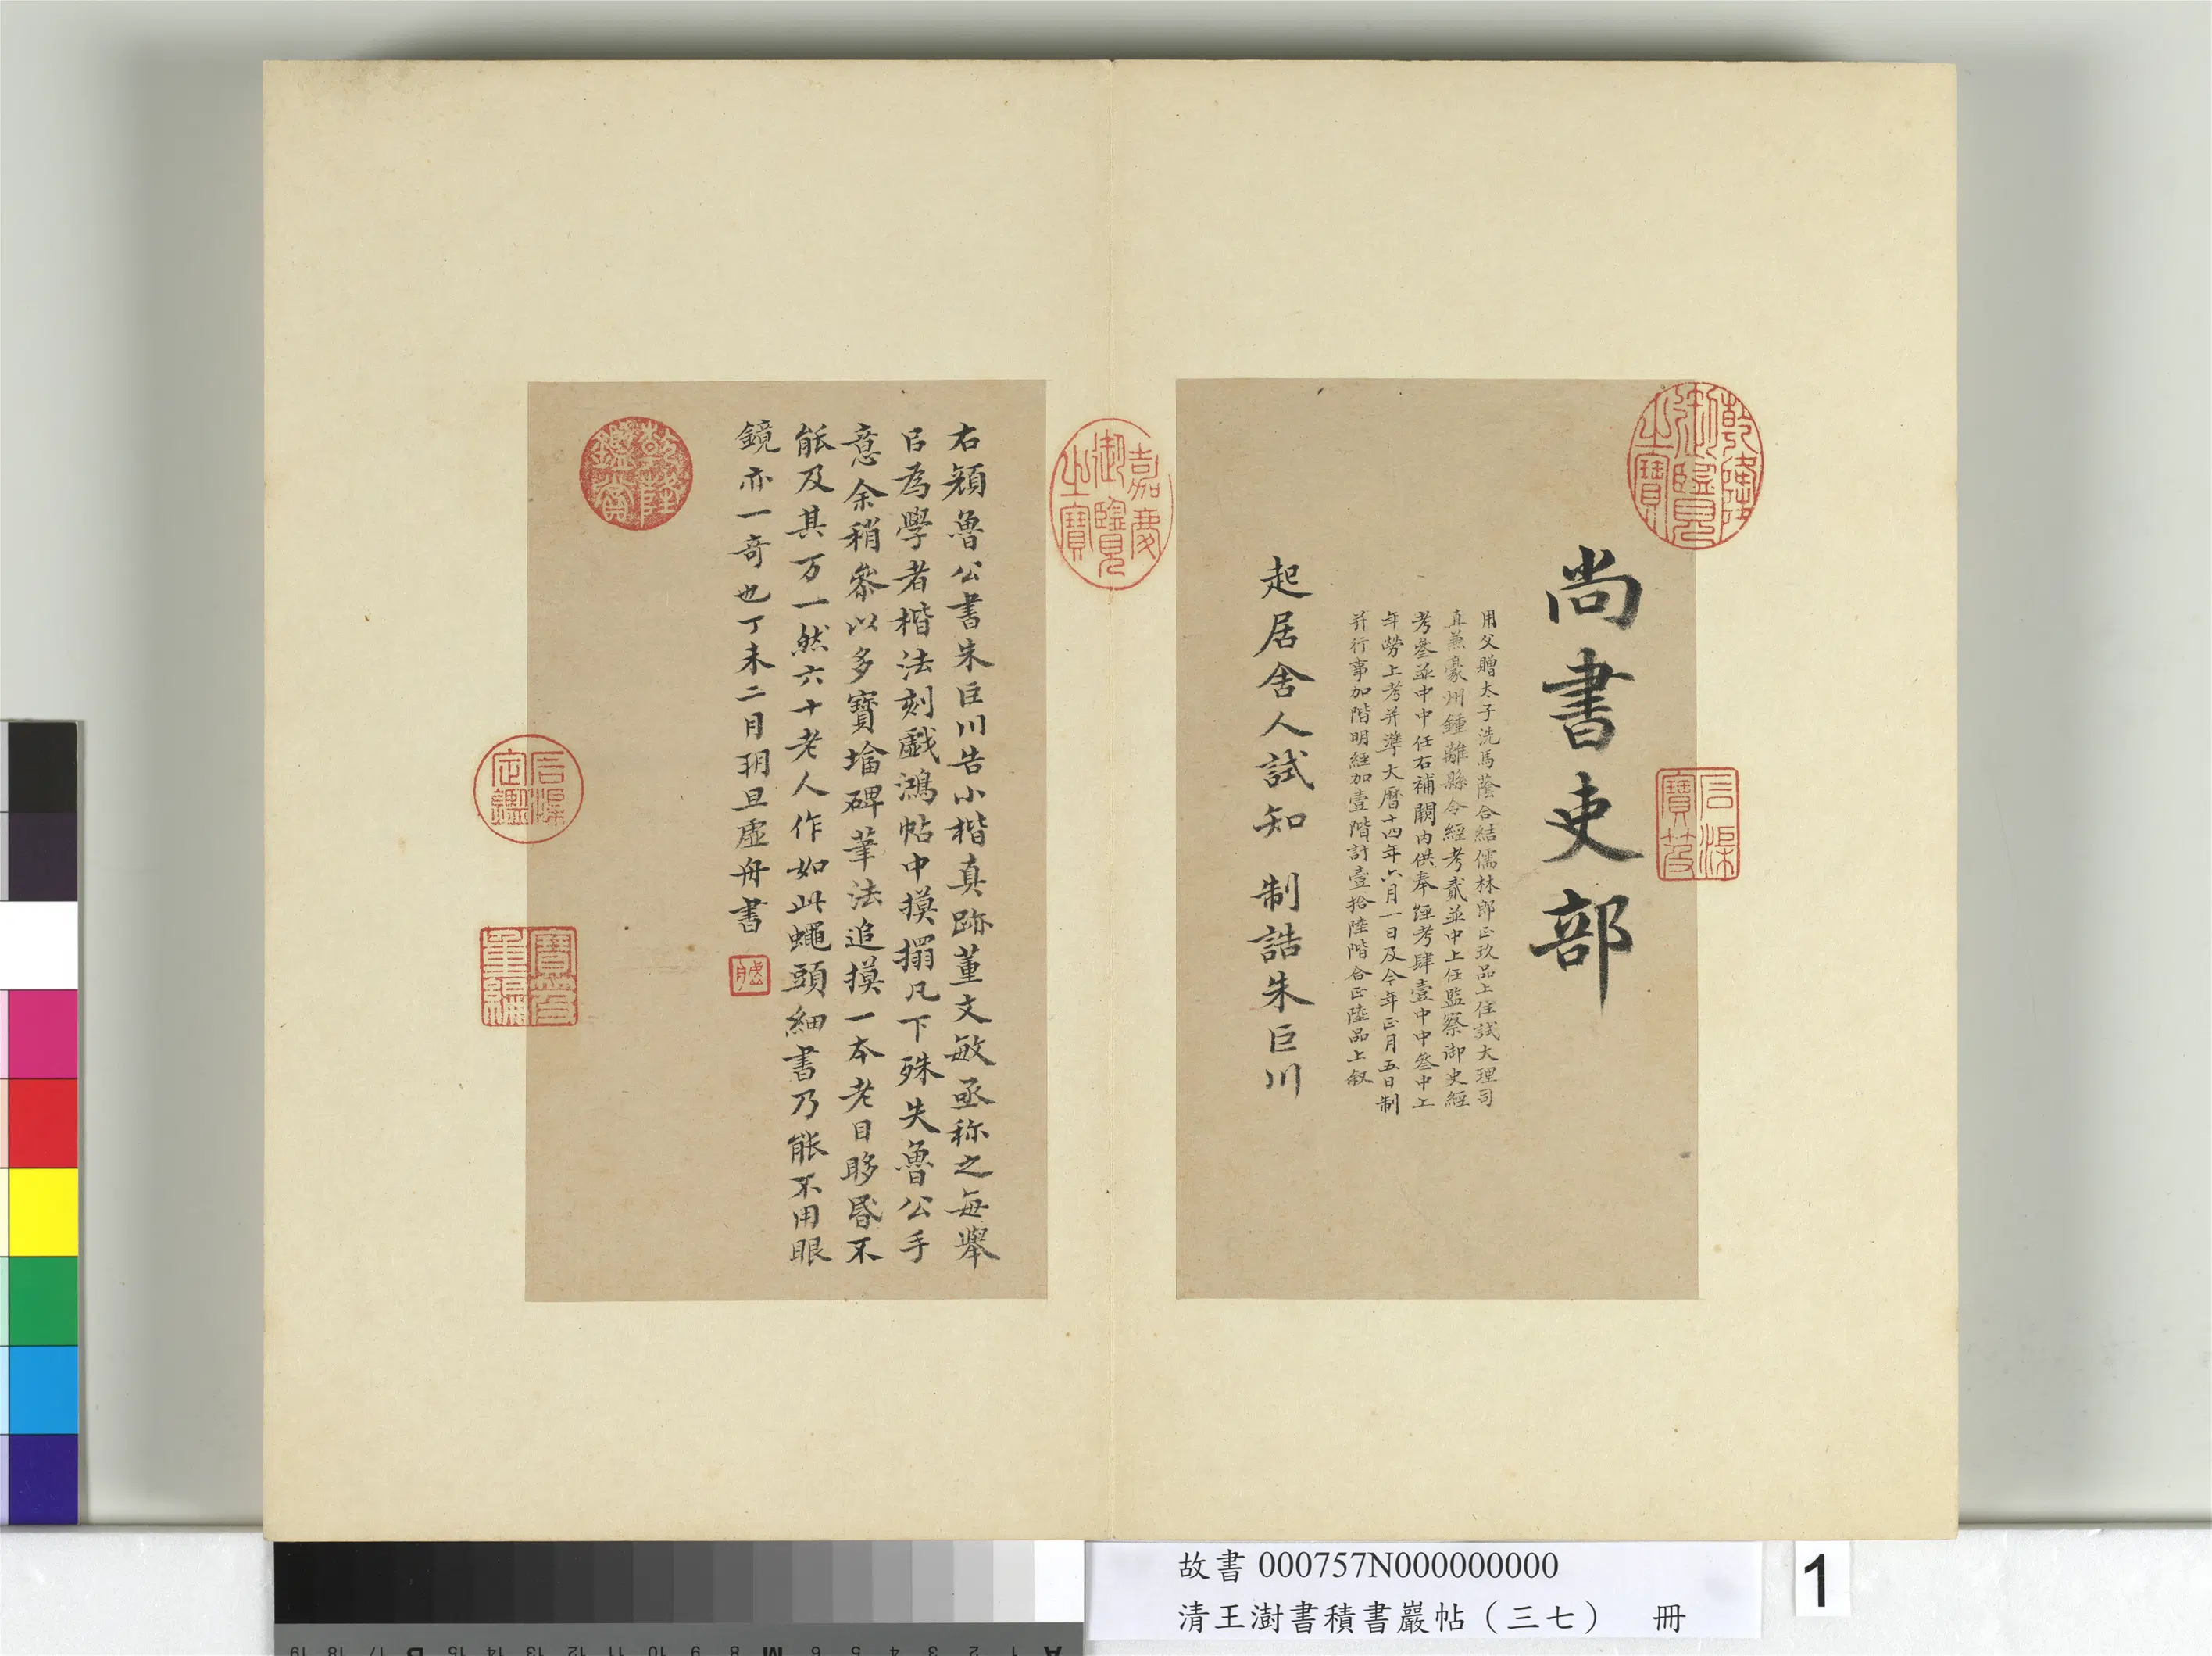 尚書吏部
用父贈太子洗馬蔭合結儒林郎正玖品上任試大理司
直兼豪州鍾離縣令經考貳並中上任監察御史經
考叁並中中任右補闕內供奉經考肆壹中中叁中上
年勞上考并準大曆十四年六月一日及今年正月五日制
并行事加階明經加壹階計壹拾陸階合正陸品上叙
起居舍人試知 制誥朱巨川
右顏魯公書朱巨川告小楷真跡董文敏亟称之每舉
㠯為學者楷法刻戯鴻帖中摸搨凡下殊失魯公手
意余稍叅以多寶墖碑筆法追摸一本老目眵昬不
能及其万一然六十老人作如此蠅頭細書乃能不用眼
鏡亦一奇也丁未二月玥旦虛舟書
乾隆御覽之寶
石渠寶笈
嘉慶御覽之寶
乾隆鑑賞
石渠定鑑
寶笈重編
故書 000757N000000000
清王澍書積書巖帖（三七） 冊
1
19 18 17 B 15 14 13 12 11 10 9 8 M 6 5 4 3 2 1 A